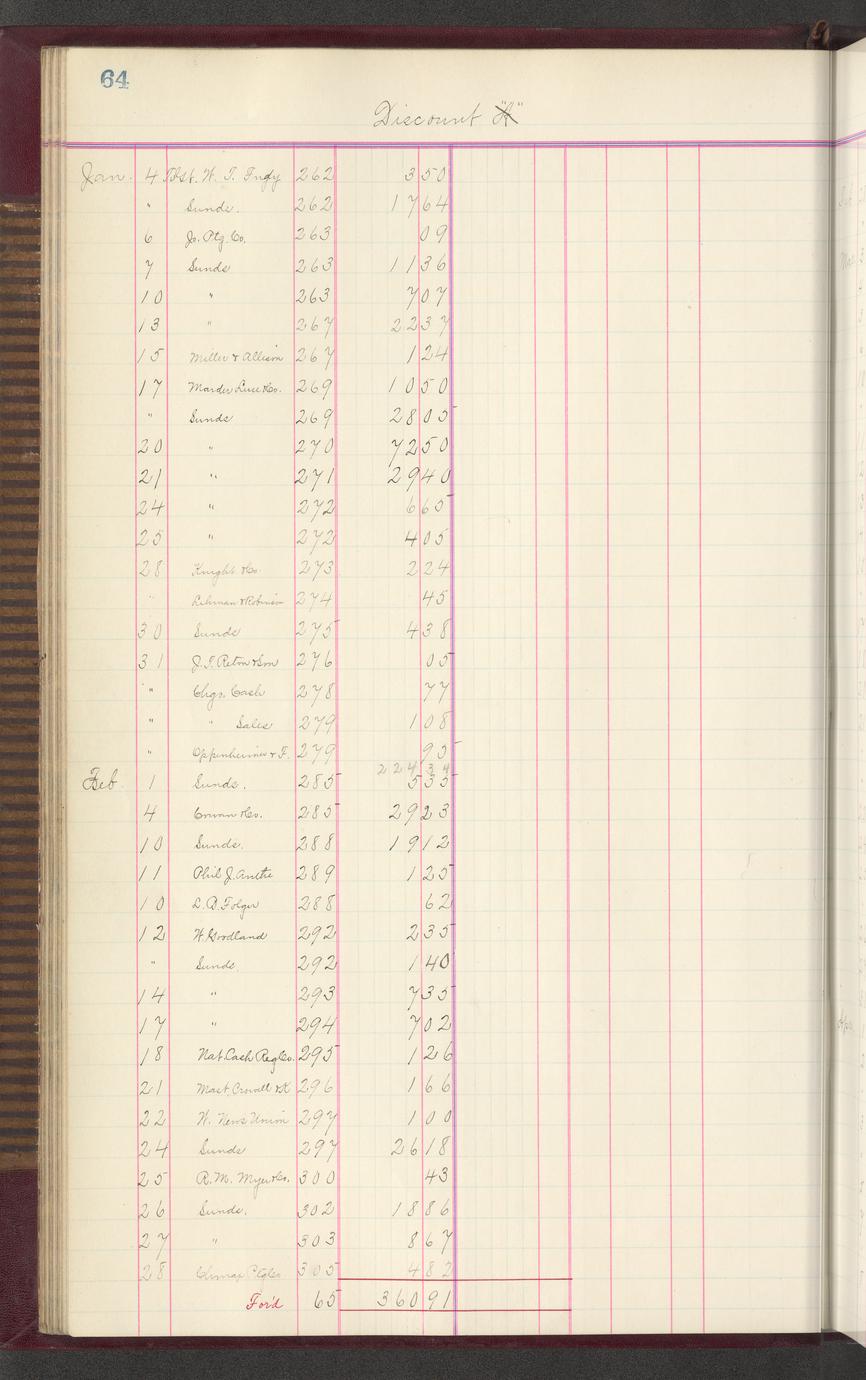 64
Discount "A"
Jan. 4 W. T. 262 3 50
" Sunds. 262 17 64
6 Jo. Ptg. Co. 263 09
7 Sunds 263 11 36
10 " 263 7 07
13 " 267 22 37
15 Miller & Allison 267 1 24
17 Marder Luse & Co. 269 10 50
" Sunds 269 28 05
20 " 270 72 50
21 " 271 29 40
24 " 272 6 65
25 " 272 4 05
28 Knight & Co 273 2 24
" Lehman & Robinson 274 45
30 Sunds 275 4 38
31 J. T. & Son 276 05
" Chgs. Cash 278 77
" " Sales 279 1 08
" Oppenheimer & F. 279 95
224 34
Feb. 1 Sunds. 285 5 35
4 Cowan & Co. 285 29 23
10 Sunds. 288 19 12
11 Phil J. 289 1 25
10 L. B. Folger 288 62
12 W. Goodland 292 2 35
" Sunds 292 1 40
14 " 293 7 35
17 " 294 7 02
18 Nat. Cash Reg Co. 295 1 26
21 Mast, Crowell & K 296 1 66
22 W. News Union 297 1 00
24 Sunds 297 26 18
25 R. M. Myer & Co. 300 43
26 Sunds. 302 18 86
27 " 303 8 67
28 Climax Ptg Co 305 4 82
For'd 65 360 91